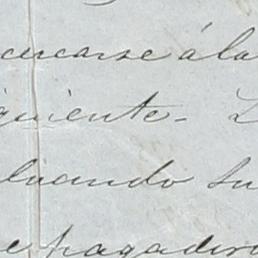 cercarse á la
quiente.
luando su
e pagadero